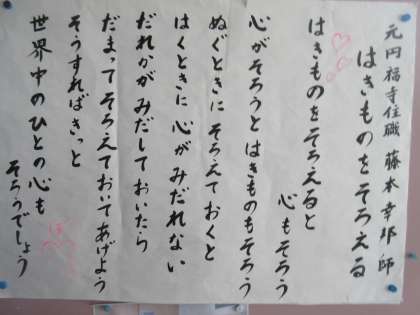 元円福寺住職 藤本幸邦師
はきものをそろえる
はきものをそろえると
心もそろう
心がそろうとはきものもそろう
ぬぐときにそろえておくと
はくときに心がみだれない
だれかがみだしておいたら
だまってそろえておいてあげよう
そうすればきっと
世界中のひとの心も
そろうでしょう